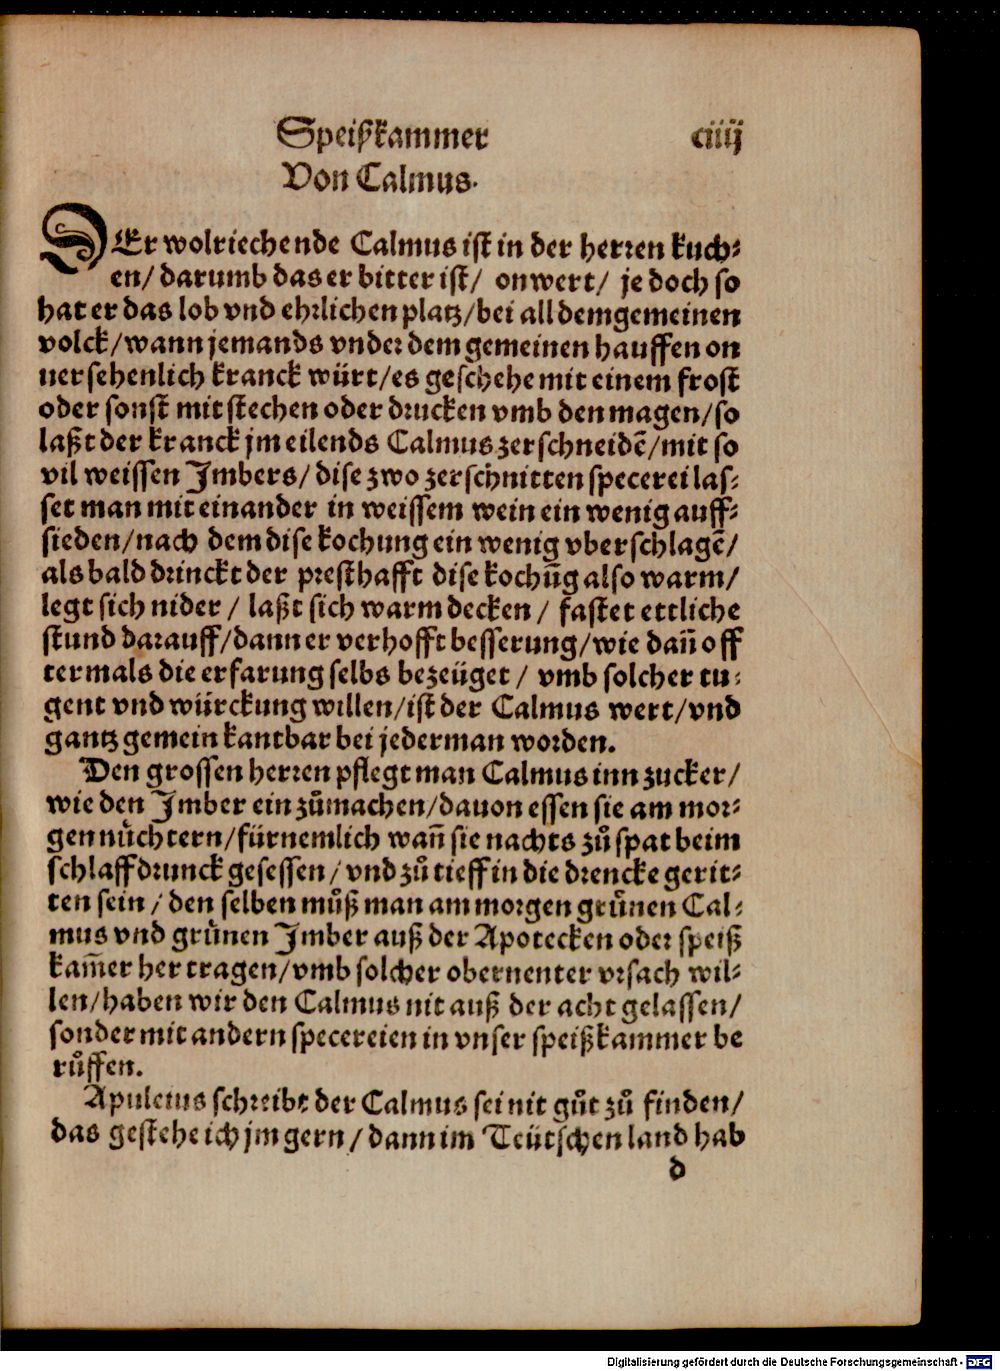 Speißkammer ciiij
Von Calmus.
DEr wolriechende Calmus ist in der herren kuch⸗
en/ darumb das er bitter ist/ onwert/ je doch so
hat er das lob vnd ehrlichen platz/bei all dem gemeinen
volck/wann jemands vnder dem gemeinen hauffen on
uersehenlich kranck würt/es geschehe mit einem frost
oder sonst mit stechen oder drucken vmb den magen/so
laßt der kranck jm eilends Calmus zerschneidē/mit so
vil weissen Jmbers/ dise zwo zerschnitten specerei las⸗
set man mit einander in weissem wein ein wenig auff⸗
sieden/nach dem dise kochung ein wenig vberschlagē/
als bald drinckt der presthafft dise kochūg also warm/
legt sich nider / laßt sich warm decken / fastet ettliche
stund darauff/dann er verhofft besserung/wie dañ off
termals die erfarung selbs bezeüget / vmb solcher tu⸗
gent vnd würckung willen/ist der Calmus wert/vnd
gantz gemein kantbar bei jederman worden.
Den grossen herren pflegt man Calmus inn zucker/
wie den Jmber ein zůmachen/dauon essen sie am mor⸗
gen nüchtern/fürnemlich wañ sie nachts zů spat beim
schlaffdrunck gesessen / vnd zů tieff in die drencke gerit⸗
ten sein / den selben můß man am morgen grünen Cal⸗
mus vnd grünen Jmber auß der Apotecken oder speiß
kam̄er her tragen/vmb solcher obernenter vrsach wil⸗
len/haben wir den Calmus nit auß der acht gelassen/
sonder mit andern specereien in vnser speißkammer be
růffen.
Apuleius schreibt der Calmus sei nit gůt zů finden/
das gestehe ich jm gern / dann im Teütschen land hab
d
Digitalisierung gefördert durch die Deutsche Forschungsgemeinschaft - DFG